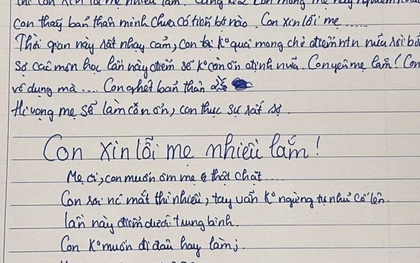 con thấy bản thân mình chưa có tiến bộ nào. Con xin lỗi mẹ ....
Thời gian này rất nhạy cảm, Con tự k° quá mong chờ điểm ntn nữa rồi bả
sợ các môn học lần này điểm số k° còn ổn định nữa. Con yêu mẹ lắm! Con
vô dụng mà .... Con ghét bản thân
Hi vọng mẹ sẽ làm còn ổn, con thực sự rất sợ.
Con xin lỗi mẹ nhiều lắm!
Mẹ ơi, con muốn ôm mẹ thật chặt
Con rơi nc mắt thì nhiều, tay vẫn k° ngừng tự nhủ cố lên
lần này điểm dưới trung bình.
Con k° muốn đi đâu hay làm j